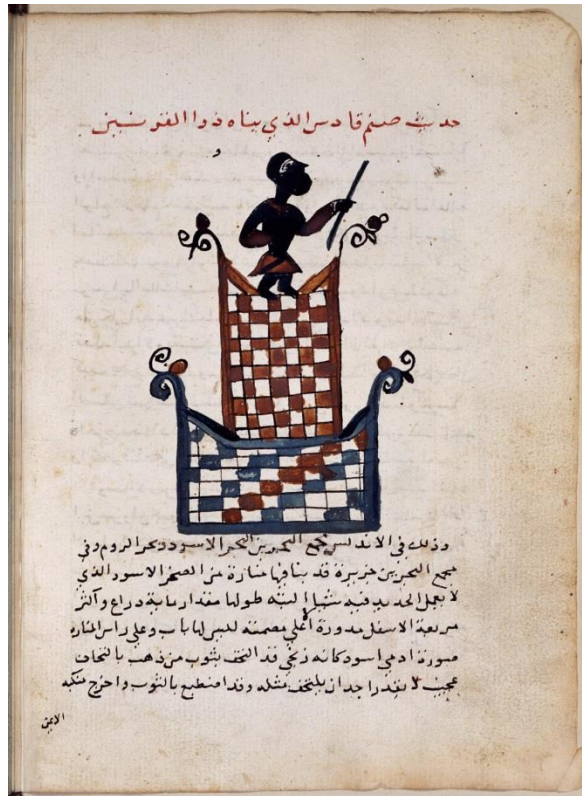 حديث صنم قادس الذي بناه ذوا القرنين
و
وذلك في الاندلس مجمع البحرين البحر الاسود وبحر الروم وفي
مجمع البحرين جزيرة قد بنا فيها منارة من الصخر الاسود الذي
لا يعمل الحديد فيه شيا البته طولها مقدار ماية دراع وأكثر
مربعة الاسفل مدورة أعلي مصمته لليس لها باب وعلي راس المناره
صورة ادمي اسود كانه زنجي قد التحف بثوب من ذهب بالتحاف
عجيب لا يقدر احد ان يلتحف مثله وقد انطبع بالثوب واخرج منكبه
الايمن